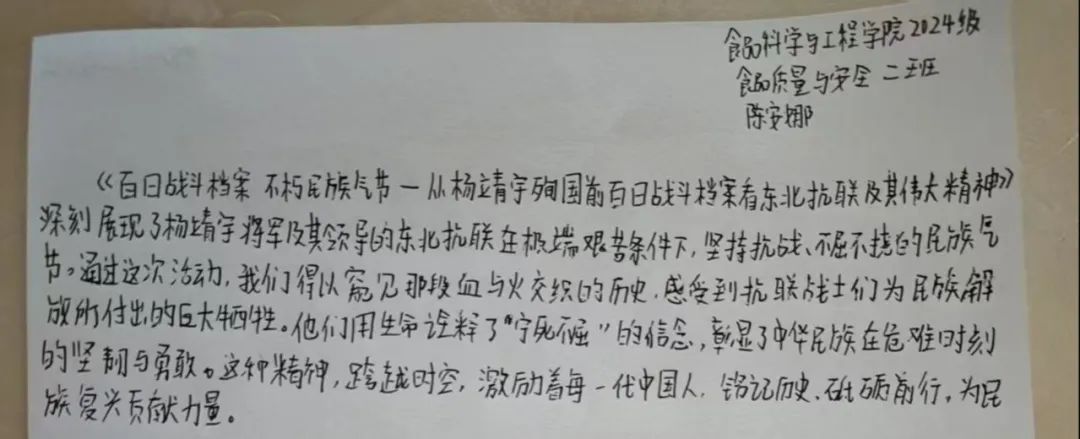 食品科学与工程学院2024级
食品质量与安全 二班
陈安娜
《百日战斗档案 不朽民族气节—从杨靖宇殉国前百日战斗档案看东北抗联及其伟大精神》
深刻展现了杨靖宇将军及其领导的东北抗联在极端艰苦条件下,坚持抗战、不屈不挠的民族气
节。通过这次活动,我们得以窥见那段血与火交织的历史,感受到抗联战士们为民族解
放所付出的巨大牺牲。他们用生命诠释了“宁死不屈”的信念,彰显了中华民族在危难时刻
的坚韧与勇敢。这种精神,跨越时空,激励着每一代中国人,铭记历史、砥砺前行,为民
族复兴贡献力量。